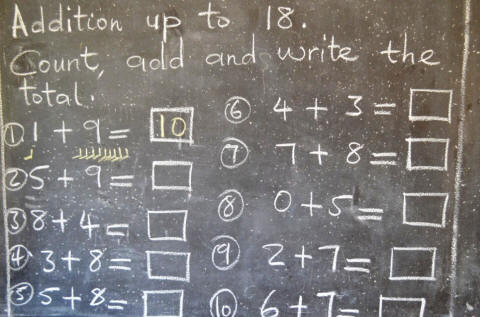 Addition up to 18.
Count, add and write the
total.
① 1 + 9 = 10
② 5 + 9 =
③ 8 + 4 =
④ 3 + 8 =
⑤ 5 + 8 =
⑥ 4 + 3 =
⑦ 7 + 8 =
⑧ 0 + 5 =
⑨ 2 + 7 =
⑩ 6 + 7 =